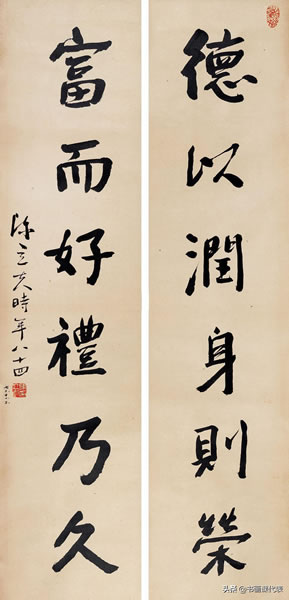 德以潤身則榮
富而好禮乃久
陳立夫時年八十四
头条@书画藏代表